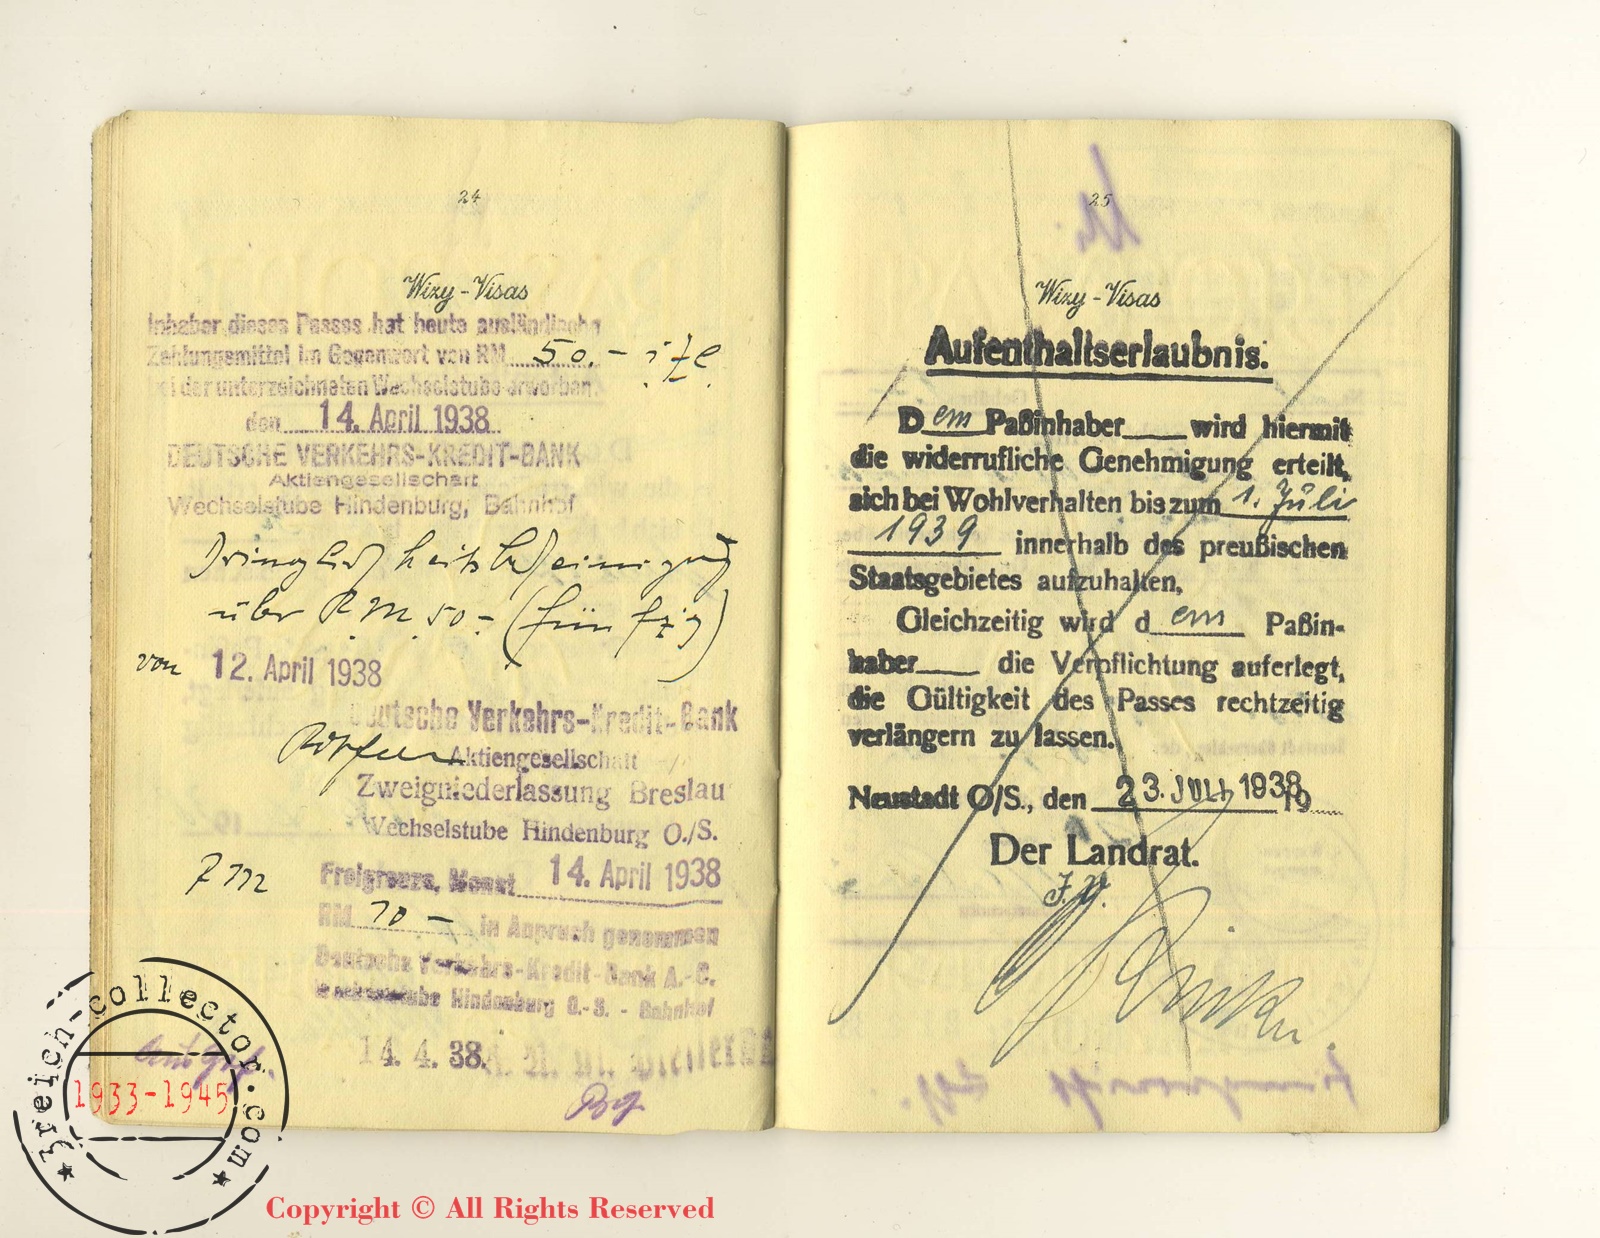 24
Wizy-Visas
Inhaber dieses Passes hat heute ausländische
Zahlungsmittel im Gegenwert von RM 50.- i. f. e.
bei der unterzeichneten Wechselstube erworben.
den 14. April 1938
DEUTSCHE VERKEHRS-KREDIT-BANK
Aktiengesellschaft
Wechselstube Hindenburg, Bahnhof
Dringlichkeitsbescheinigung
über RM 50.- (fünfzig)
von 12. April 1938
Deutsche Verkehrs-Kredit-Bank
Aktiengesellschaft
Zweigniederlassung Breslau
Wechselstube Hindenburg O./S.
Freigrenze, Monat 14. April 1938
RM 10 - in Anpruch genommen
Deutsche Verkehrs-Kredit-Bank A.-G.
Wechselstube Hindenburg O.-S. - Bahnhof
14. 4. 38.
25
Wizy-Visas
Aufenthaltserlaubnis.
Dem Paßinhaber wird hiermit
die widerrufliche Genehmigung erteilt,
sich bei Wohlverhalten bis zum 1. Juli
1939 innerhalb des preußischen
Staatsgebietes aufzuhalten,
Gleichzeitig wird dem Paßin-
haber die Verpflichtung auferlegt,
die Gültigkeit des Passes rechtzeitig
verlängern zu lassen.
Neustadt O/S., den 23. JULI 1938 19
Der Landrat.
J. V.
3reich-collector.com
1933-1945
Copyright © All Rights Reserved